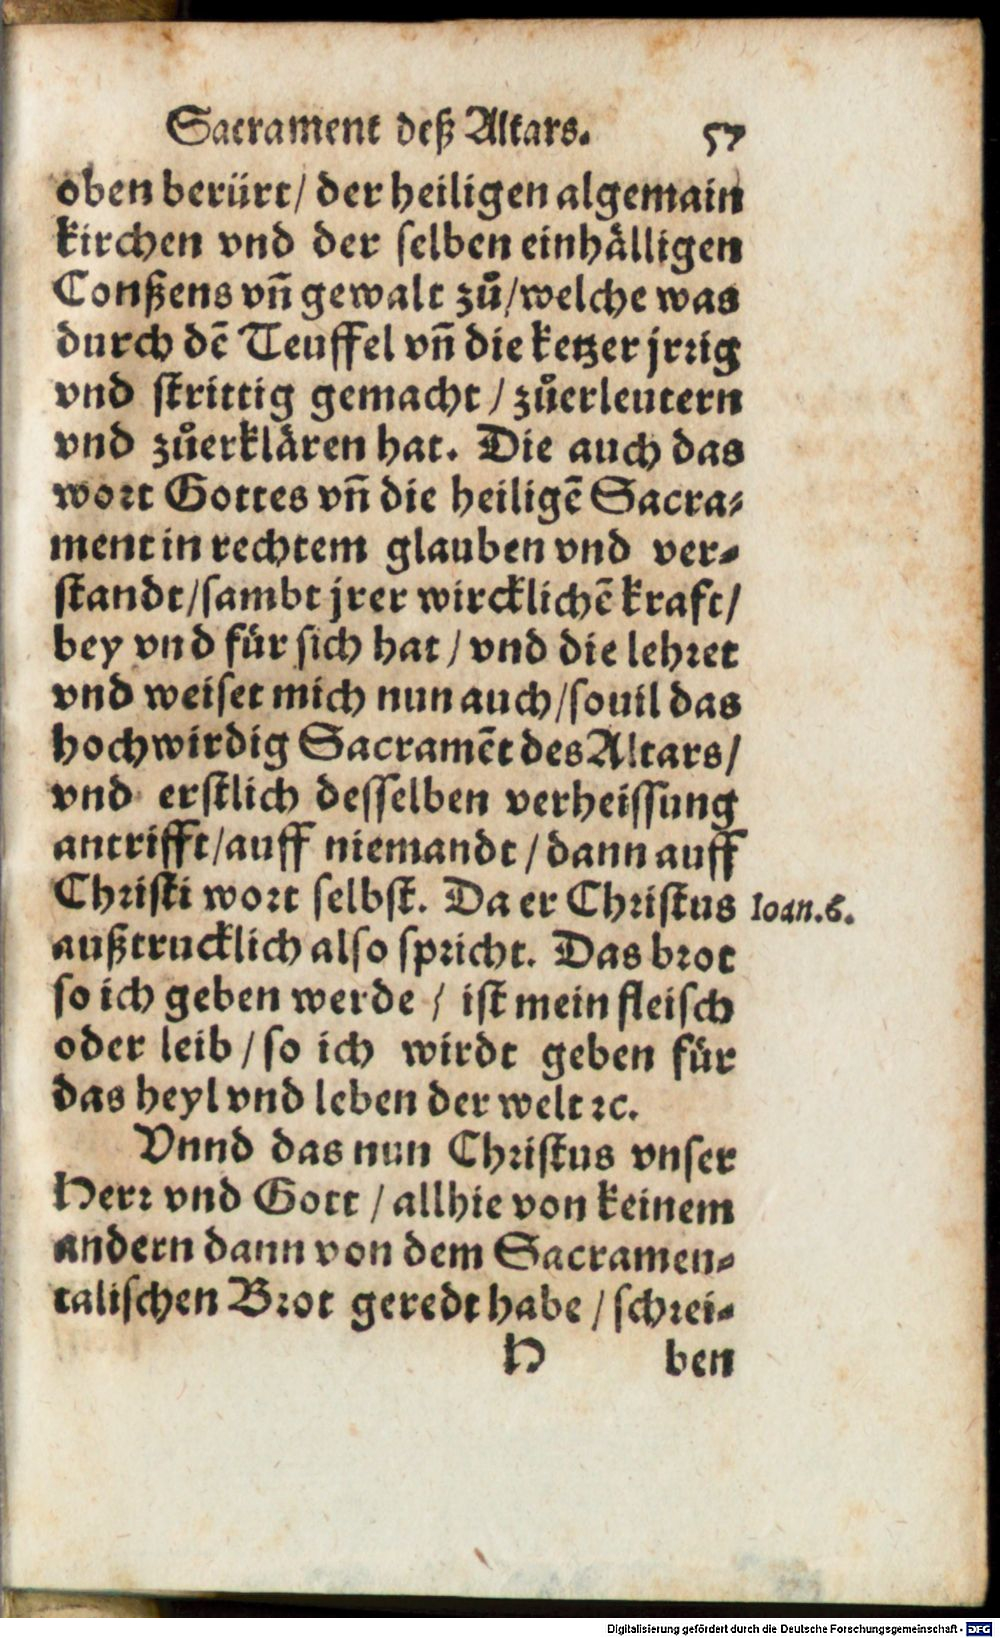 Sacrament deß Altars. 57
oben berürt/ der heiligen algemain
kirchen vnd der selben einhälligen
Conßens vñ gewalt zů/welche was
durch dē Teuffel vñ die ketzer jrrig
vnd strittig gemacht / zůerleutern
vnd zůerklären hat. Die auch das
wort Gottes vñ die heiligē Sacra-
ment in rechtem glauben vnd ver-
standt/sambt jrer wircklichē kraft/
bey vnd für sich hat / vnd die lehret
vnd weiset mich nun auch/souil das
hochwirdig Sacramēt des Altars/
vnd erstlich desselben verheissung
antrifft/auff niemandt / dann auff
Christi wort selbst. Da er Christus Ioan.6.
außtrucklich also spricht. Das brot
so ich geben werde / ist mein fleisch
oder leib / so ich wirdt geben für
das heyl vnd leben der welt ꝛc.
Vnnd das nun Christus vnser
Herr vnd Gott / allhie von keinem
andern dann von dem Sacramen-
talischen Brot geredt habe / schrei-
H ben
Digitalisierung gefördert durch die Deutsche Forschungsgemeinschaft - DFG